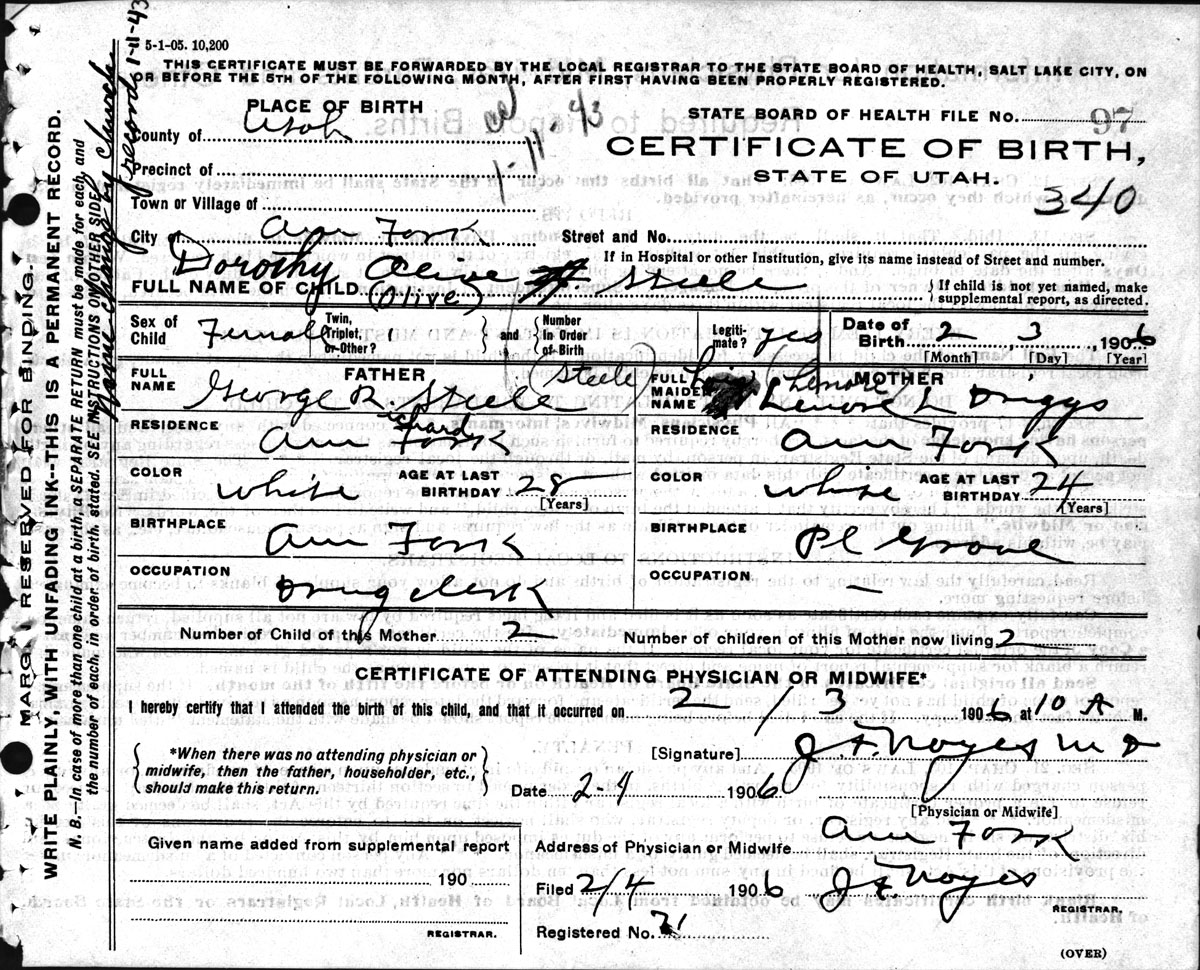 5-1-05. 10,200
THIS CERTIFICATE MUST BE FORWARDED BY THE LOCAL REGISTRAR TO THE STATE BOARD OF HEALTH, SALT LAKE CITY, ON
OR BEFORE THE 5TH OF THE FOLLOWING MONTH, AFTER FIRST HAVING BEEN PROPERLY REGISTERED.
MARGIN RESERVED FOR BINDING.
WRITE PLAINLY, WITH UNFADING INK--THIS IS A PERMANENT RECORD.
N. B.—In case of more than one child at a birth, a SEPARATE RETURN must be made for each, and
the number of each, in order of birth, stated. SEE INSTRUCTIONS ON OTHER SIDE.
Name change by Church
record 1-11-43
PLACE OF BIRTH
STATE BOARD OF HEALTH FILE NO. 97
County of Utah
1-11-43
CERTIFICATE OF BIRTH,
Precinct of
STATE OF UTAH.
Town or Village of
340
City of Am Fork Street and No.
If in Hospital or other Institution, give its name instead of Street and number.
Dorothy Olive Steele
FULL NAME OF CHILD (Olive) { If child is not yet named, make supplemental report, as directed.
Sex of Child Female Twin, Triplet, or Other? } and { Number in Order of Birth Legitimate? yes Date of Birth 2 3 1906
[Month] [Day] [Year]
FATHER (Steele) MOTHER
FULL NAME George R. Steele FULL MAIDEN NAME Lenore L Driggs
(Lenore)
ichard
RESIDENCE Am Fork RESIDENCE Am Fork
COLOR White AGE AT LAST BIRTHDAY 28 [Years] COLOR White AGE AT LAST BIRTHDAY 24 [Years]
BIRTHPLACE Am Fork BIRTHPLACE Pl Grove
OCCUPATION Drug clerk OCCUPATION —
Number of Child of this Mother 2 Number of children of this Mother now living 2
CERTIFICATE OF ATTENDING PHYSICIAN OR MIDWIFE*
I hereby certify that I attended the birth of this child, and that it occurred on 2 / 3 1906 at 10 A M.
*When there was no attending physician or
midwife, then the father, householder, etc.,
should make this return.
[Signature] J. F. Noyes M D
Date 2-4 1906
[Physician or Midwife]
Given name added from supplemental report
190
REGISTRAR.
Address of Physician or Midwife Am Fork
Filed 2/4 1906 J F Noyes
REGISTRAR.
Registered No. 21
(OVER)